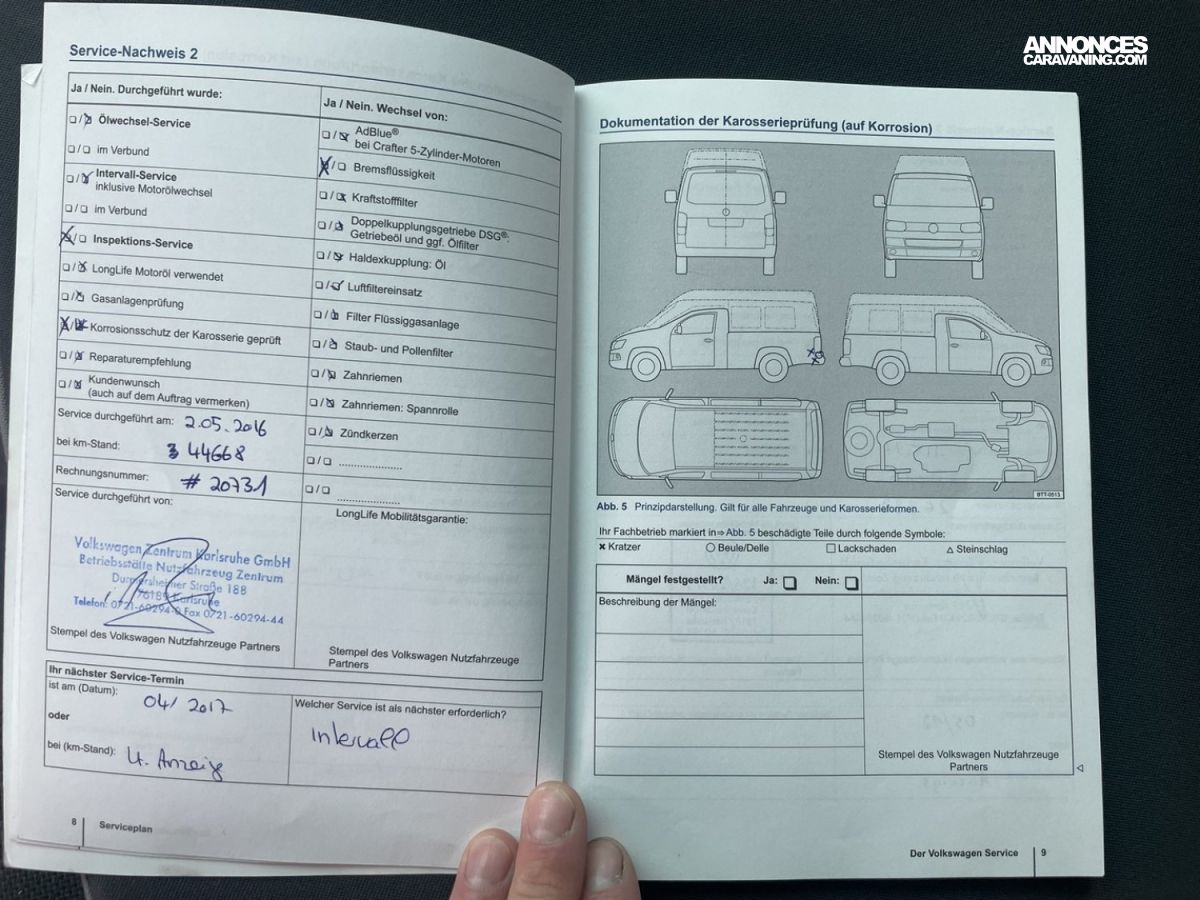 ANNONCES
CARAVANING.COM
Service-Nachweis 2
Ja / Nein. Durchgeführt wurde:
Ölwechsel-Service
im Verbund
Intervall-Service
inklusive Motorölwechsel
im Verbund
Inspektions-Service
LongLife Motoröl verwendet
Gasanlagenprüfung
Korrosionsschutz der Karosserie geprüft
Reparaturempfehlung
Kundenwunsch
(auch auf dem Auftrag vermerken)
Service durchgeführt am: 2.05.2016
bei km-Stand: 44668
Rechnungsnummer: # 20731
Service durchgeführt von:
Volkswagen Zentrum Karlsruhe GmbH
Betriebsstätte Nutzfahrzeug Zentrum
Durmersheimer Straße 188
76189 Karlsruhe
Telefon: 0721-60294-0 Fax 0721-60294-44
Stempel des Volkswagen Nutzfahrzeuge Partners
Ja / Nein. Wechsel von:
AdBlue®
bei Crafter 5-Zylinder-Motoren
Bremsflüssigkeit
Kraftstofffilter
Doppelkupplungsgetriebe DSG®:
Getriebeöl und ggf. Ölfilter
Haldexkupplung: Öl
Luftfiltereinsatz
Filter Flüssiggasanlage
Staub- und Pollenfilter
Zahnriemen
Zahnriemen: Spannrolle
Zündkerzen
LongLife Mobilitätsgarantie:
Stempel des Volkswagen Nutzfahrzeuge
Partners
Ihr nächster Service-Termin
ist am (Datum): 04/ 2017
oder
bei (km-Stand): lt. Anzeige
Welcher Service ist als nächster erforderlich?
Intervall
8 Serviceplan
Dokumentation der Karosserieprüfung (auf Korrosion)
BTT-0513
Abb. 5 Prinzipdarstellung. Gilt für alle Fahrzeuge und Karosserieformen.
Ihr Fachbetrieb markiert in ⇒ Abb. 5 beschädigte Teile durch folgende Symbole:
× Kratzer ○ Beule/Delle □ Lackschaden △ Steinschlag
Mängel festgestellt? Ja: Nein:
Beschreibung der Mängel:
Stempel des Volkswagen Nutzfahrzeuge
Partners
Der Volkswagen Service 9